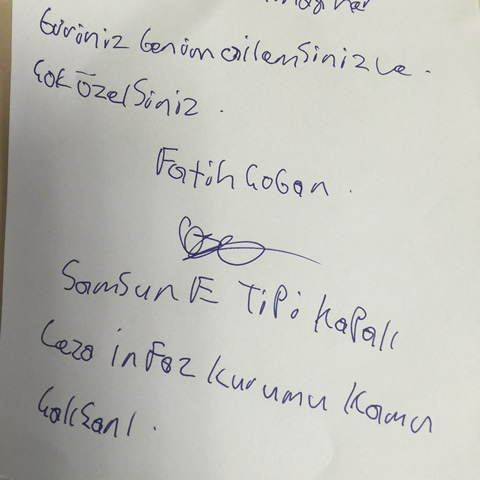 Güriniz benim ailemsiniz ve.
Çok özelsiniz.
Fatih Çoban.
Samsun E Tipi Kapalı
Ceza infaz kurumu kamu
Çalışanı.